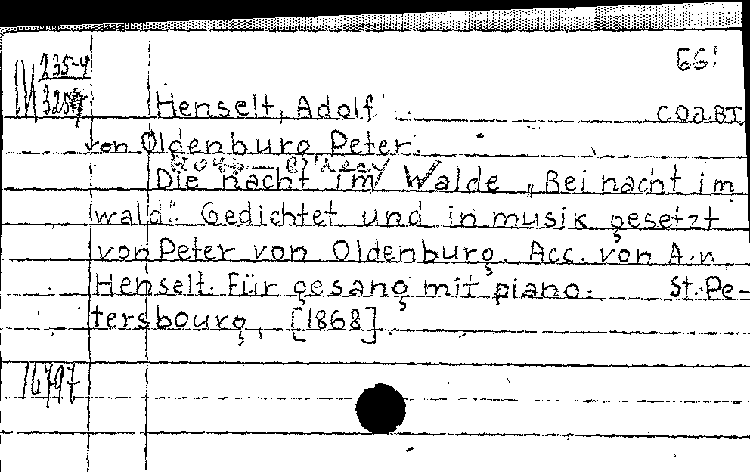 M 235-4
325
66!
Henselt, Adolf
соавт.
von Oldenburg Peter.
Die nacht im Walde „Bei nacht im
wald". Gedichtet und in musik gesetzt
von Peter von Oldenburg. Acc. von A.v.
Henselt. Für gesang mit piano. St.-Pe-
tersbourg, [1868].
16797